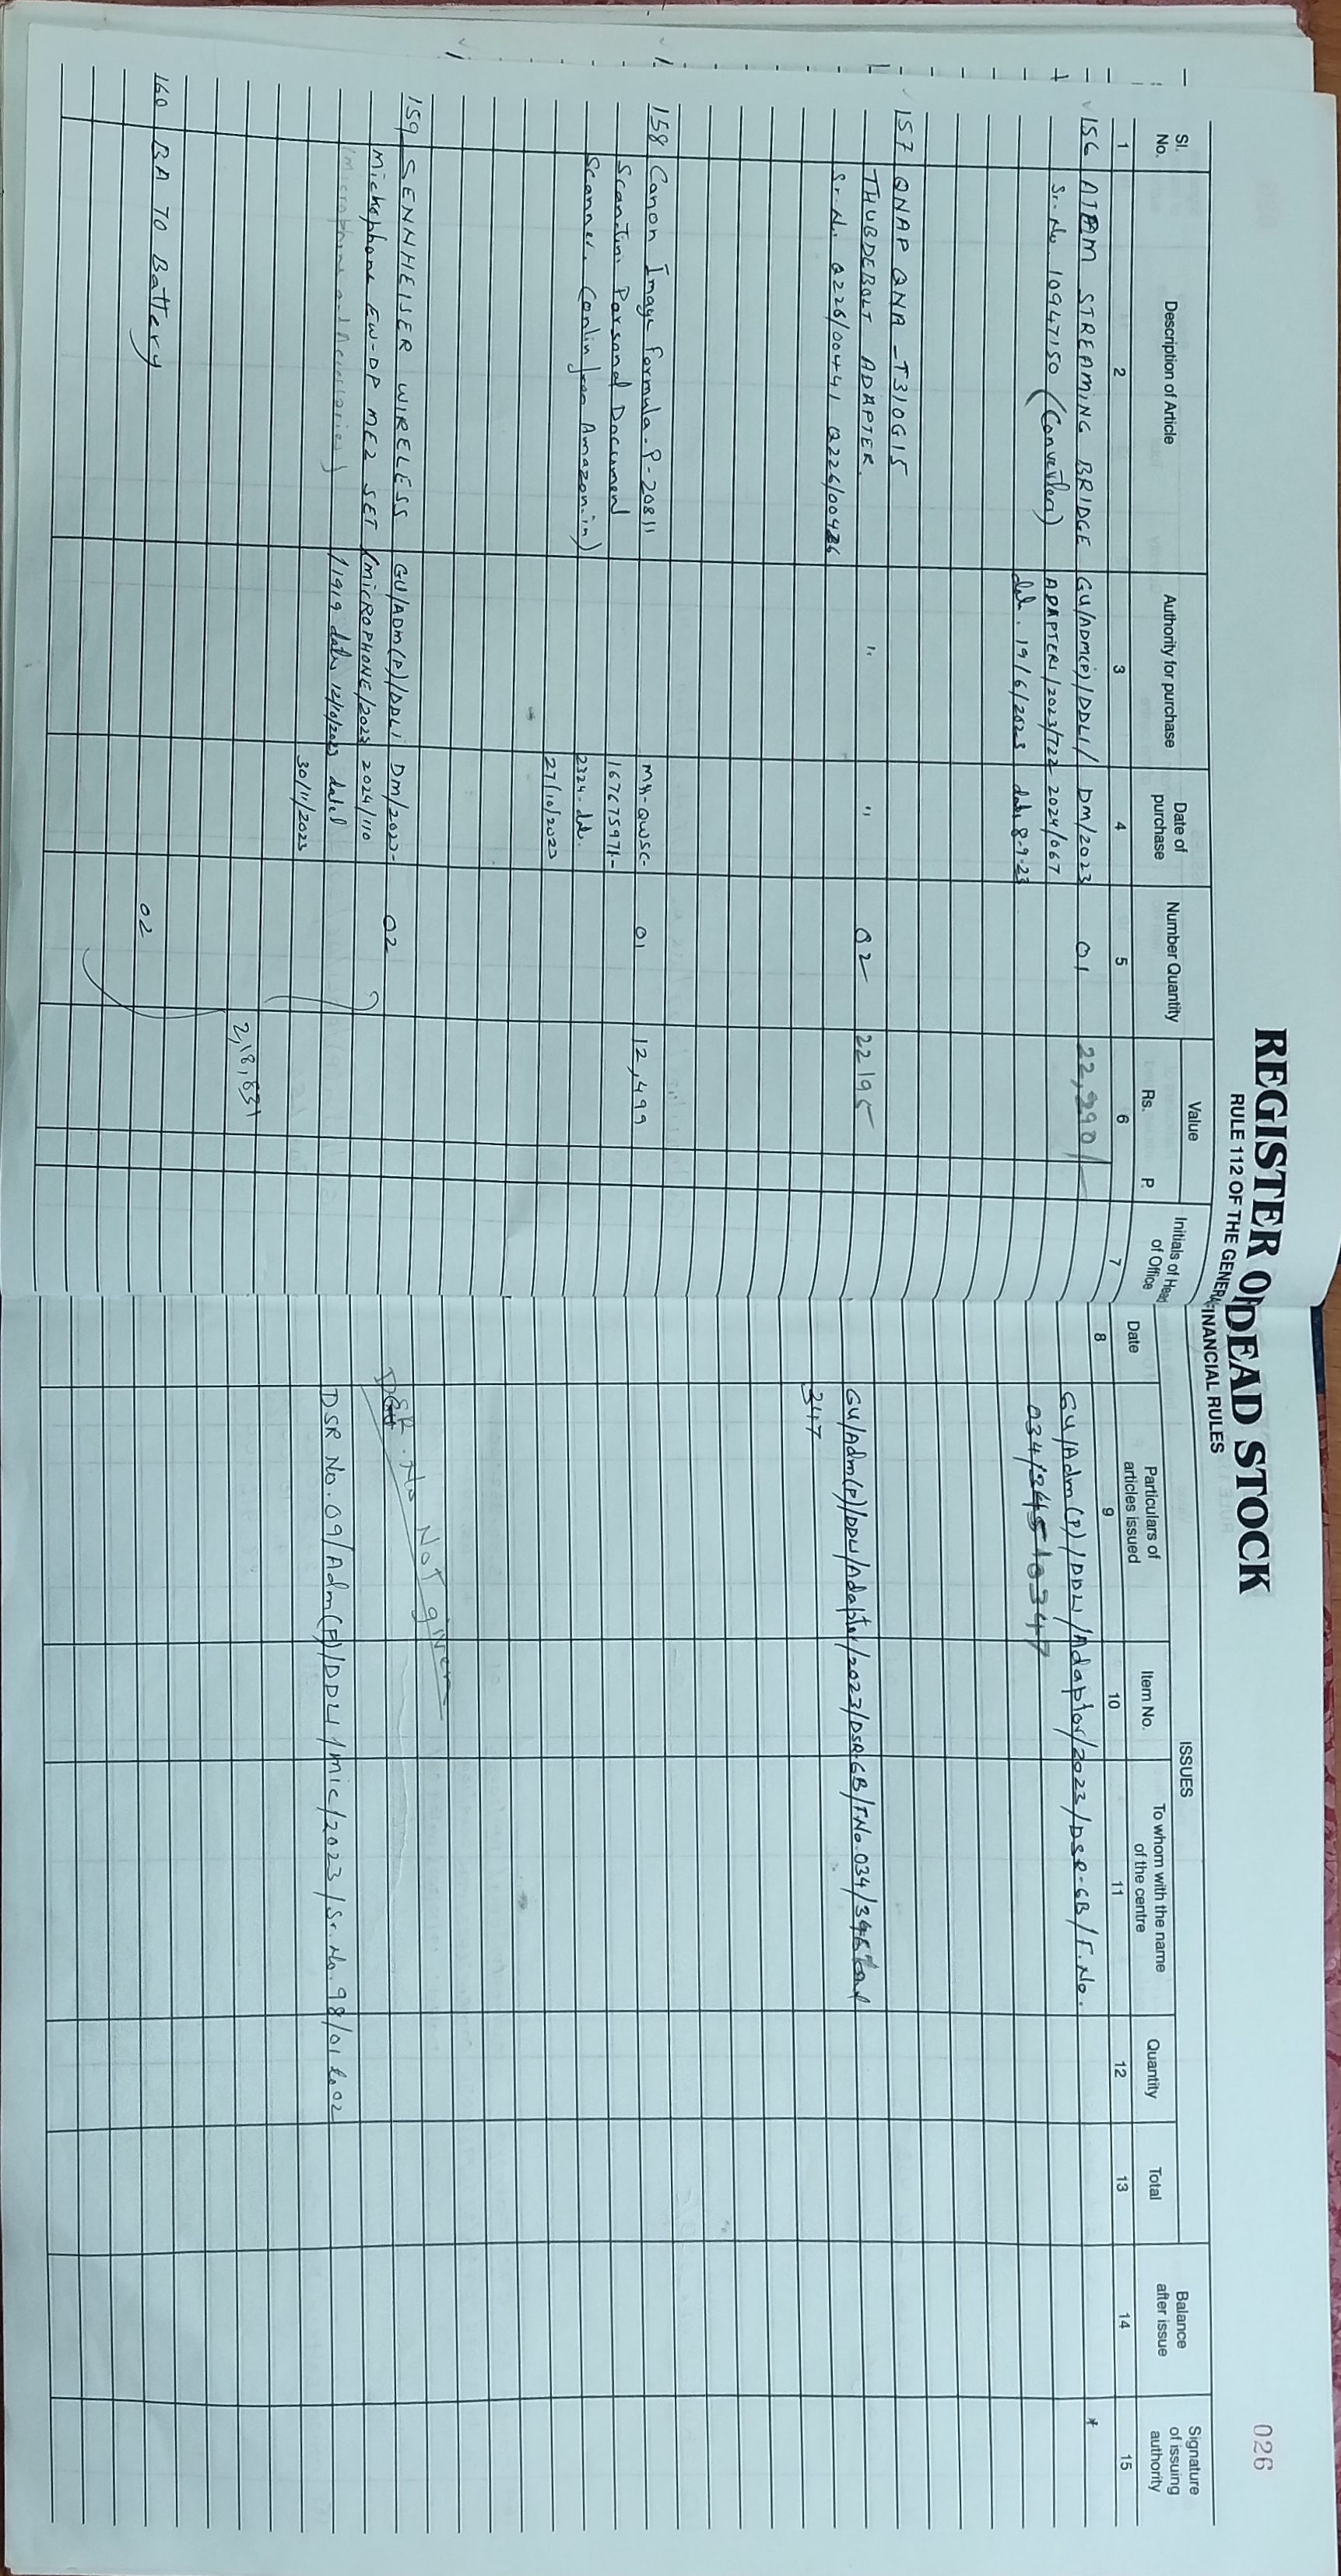 026
REGISTER OF DEAD STOCK
RULE 112 OF THE GENERAL FINANCIAL RULES
Sl. No.
Description of Article
Authority for purchase
Date of purchase
Number Quantity
Value
Rs.
P.
Initials of Head of Office
ISSUES
Date
Particulars of articles issued
Item No.
To whom with the name of the centre
Quantity
Total
Balance after issue
Signature of issuing authority
1 2 3 4 5 6 7 8 9 10 11 12 13 14 15
156 ATEM STREAMING BRIDGE GU/ADM(P)/DDLI/ DM/2023 01 22,290/- GU/Adm(P)/DDLI/Adaptor/2023/DSR-GB/F.No.
Sr. No. 10947150 (Convertor) ADAPTER1/2023/722 2024/067 034/
dt. 19/6/2023 dt. 8-9-23
157 QNAP QNA-T310G1S
THUBDEBOLT ADAPTER " " 02 22195 GU/Adm(P)/DDLI/Adapter/2023/DSR-GB/F.No.034/
Sr. No. Q226/00441 Q226/00426 347
158 Canon Image Formula-P-20811 MH-QWSC- 01 12,499
Scan-Tini Personal Document 167675971-
Scanner. (online from Amazon.in) 2324 dt.
27/10/2023
159 SENNHEISER WIRELESS GU/ADM(P)/DDLI DM/2023- 02 DSR. No Not given
Mickophone EW-DP ME2 SET (MICROPHONE/2023 2024/110
(Microphone and Accessories) /1919 date 12/10/2023 dated DSR No.09/Adm(P)/DDLI/Mic/2023/Sr.No.98/01 & 02
30/11/2023
2,18,831
160 BA 70 Battery 02